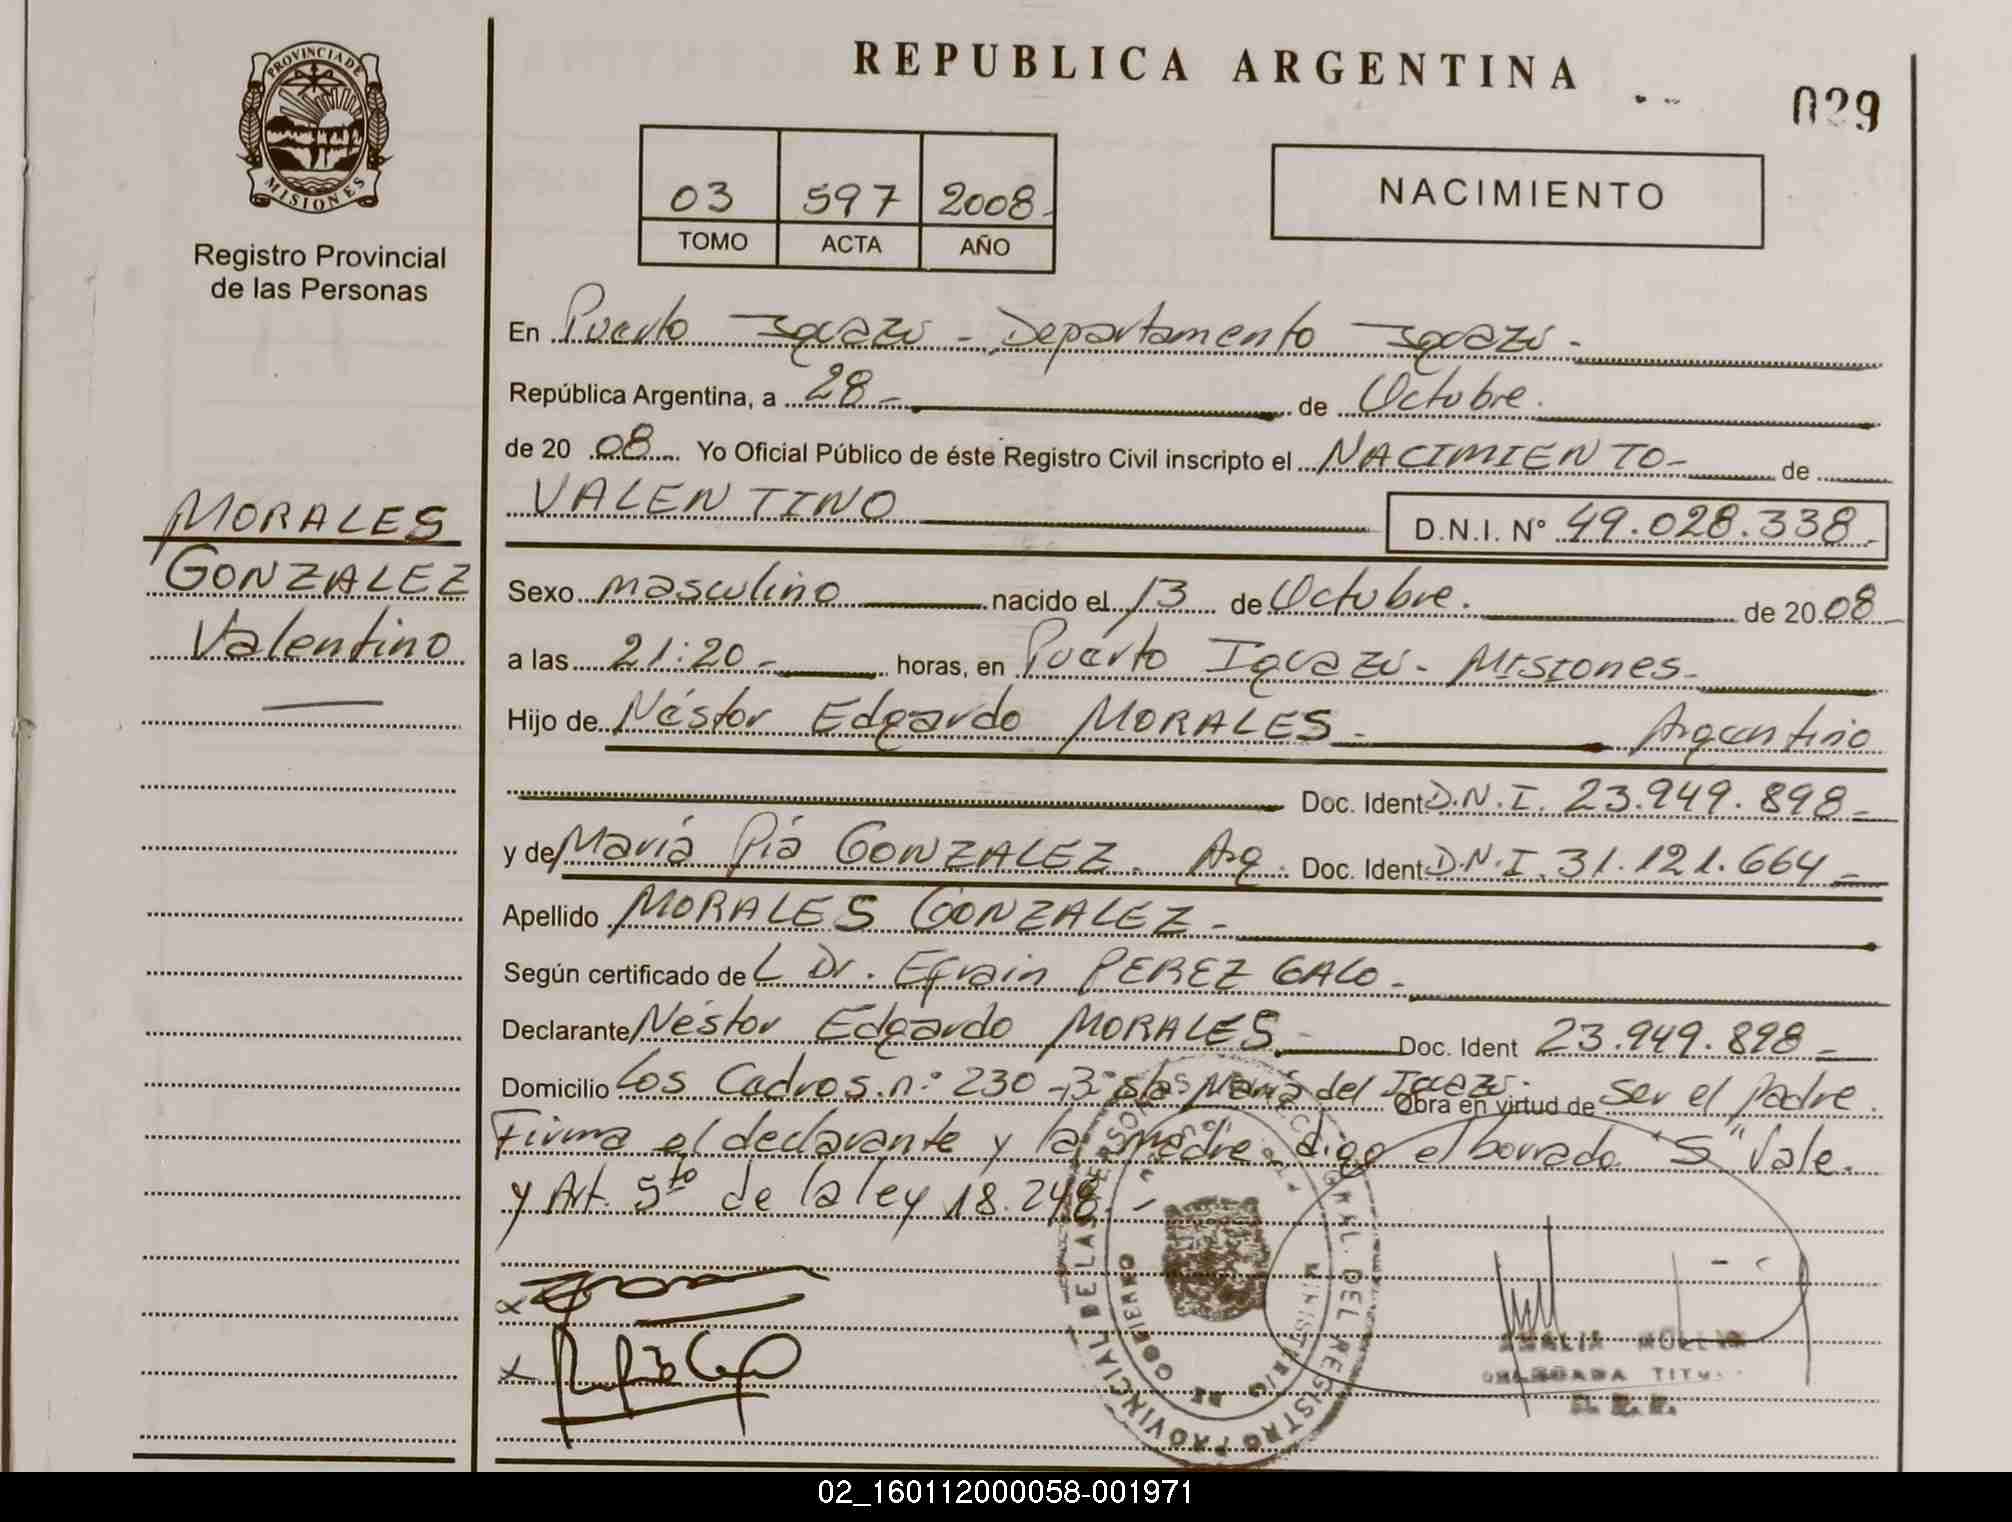 REPUBLICA ARGENTINA
029
PROVINCIA DE
MISIONES
Registro Provincial
de las Personas
03 597 2008-
TOMO ACTA AÑO
NACIMIENTO
En Puerto Iguazú - Departamento Iguazú -
República Argentina, a 28 - de Octubre.
de 20 08 Yo Oficial Público de éste Registro Civil inscripto el NACIMIENTO - de
VALENTINO D.N.I. N° 49.028.338-
MORALES
GONZALEZ
Valentino
Sexo masculino nacido el 13 de Octubre. de 20 08
a las 21:20 - horas, en Puerto Iguazú - Misiones -
Hijo de Néstor Edgardo MORALES - Argentino
Doc. Ident. D.N.I. 23.949.898-
y de María Piá GONZALEZ. Arg. Doc. Ident. D.N.I. 31.121.664-
Apellido MORALES GONZALEZ -
Según certificado de L Dr. Efrain PEREZ GALO -
Declarante Néstor Edgardo MORALES - Doc. Ident 23.949.898-
Domicilio Los Cedros n° 230 - María del Iguazú. Obra en virtud de ser el padre.
Firma el declarante y la madre digo el borrado "S" Vale.
y Art. 5to de la ley 18.248. -
REGISTRO PROVINCIAL DE LAS PERSONAS
MINISTERIO DE GOBIERNO
02_160112000058-001971